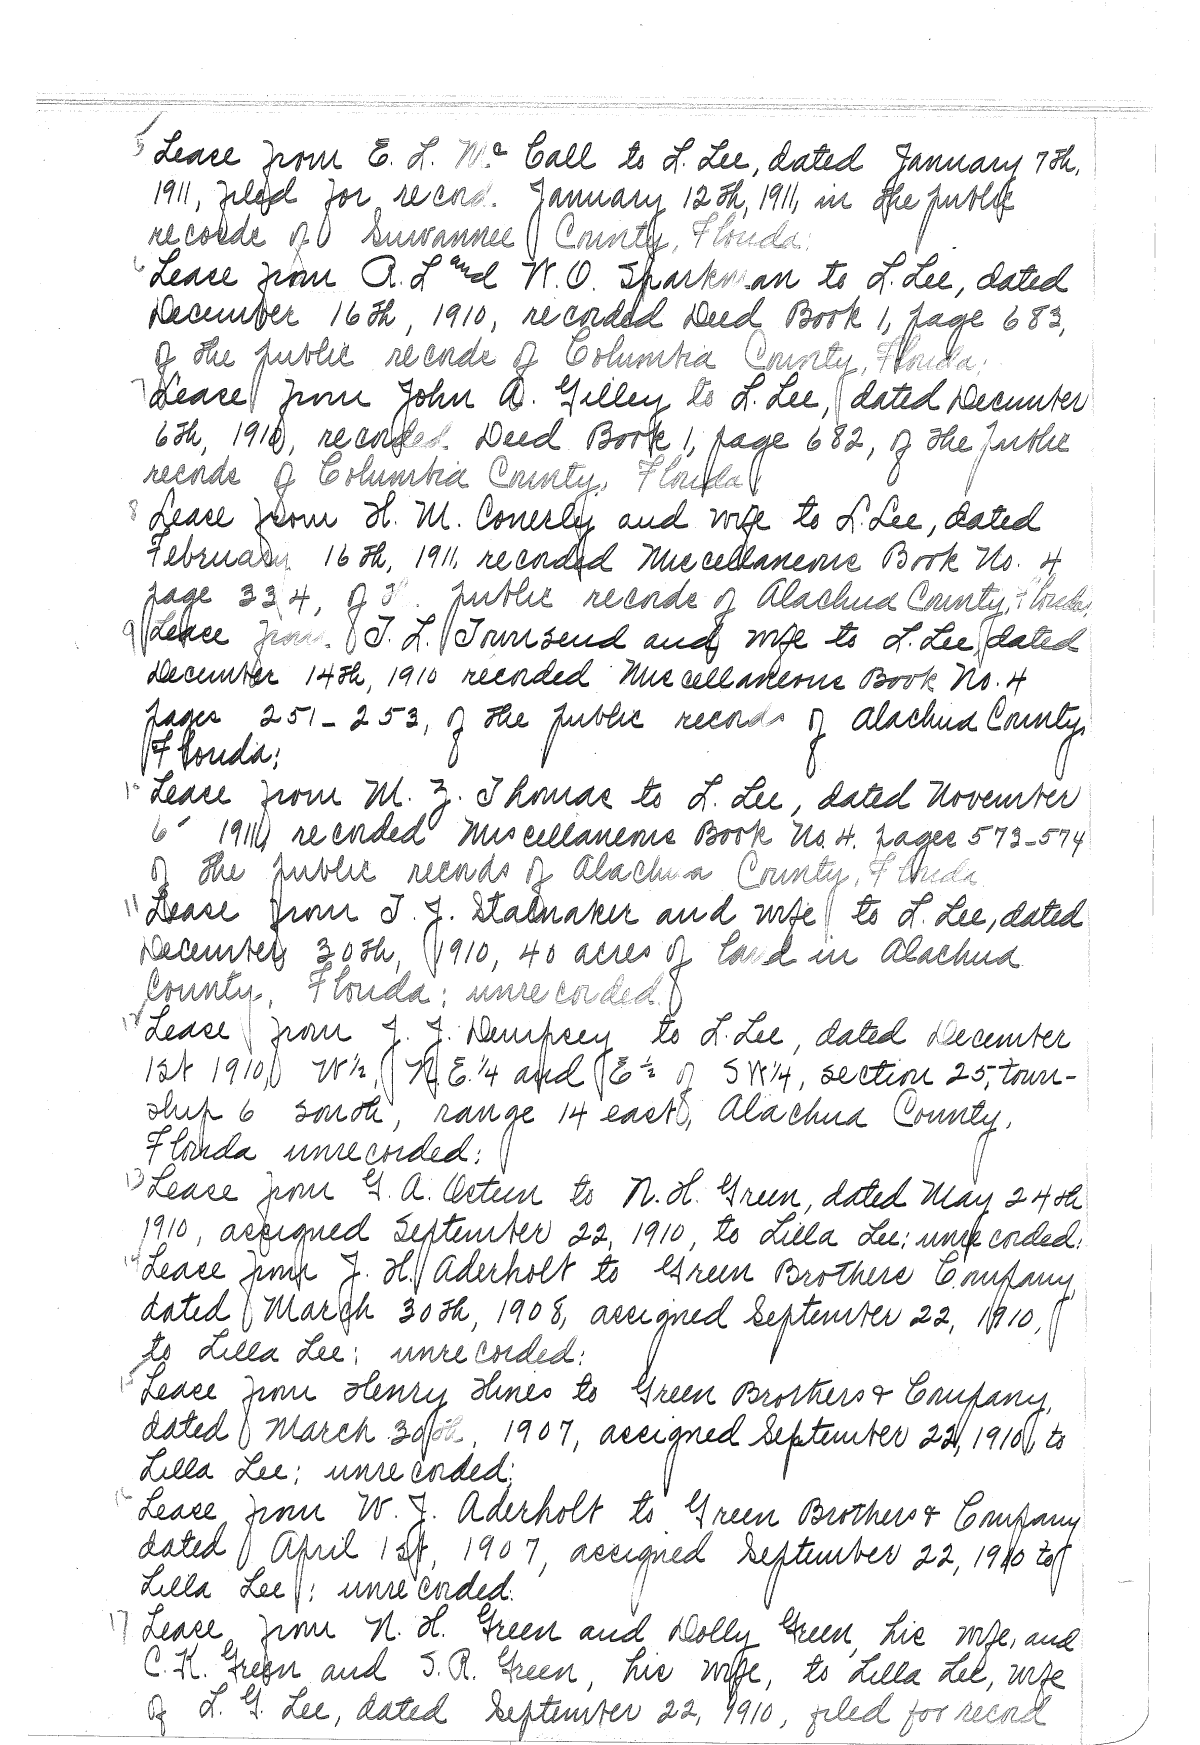 5 Lease from E. L. Mc Call to L. Lee, dated January 7th,
1911, filed for record. January 12th, 1911, in the public
records of Suwannee County, Florida;
6 Lease from A. L and W. O. Sparkman to L. Lee, dated
December 16th, 1910, recorded Deed Book 1, page 683,
of the public records of Columbia County, Florida;
7 Lease from John A. Gilley to L. Lee, dated December
6th, 1910, recorded. Deed Book 1, page 682, of the public
records of Columbia County, Florida
8 Lease from H. M. Conerly and wife to L. Lee, dated
February 16th, 1911, recorded Miscellaneous Book No. 4
page 334, of public records of Alachua County, Florida,
9 Lease from T. L. Townsend and wife to L. Lee, dated
December 14th, 1910 recorded Miscellaneous Book No. 4
pages 251-253, of the public records of Alachua County,
Florida;
10 Lease from M. Z. Thomas to L. Lee, dated November
6 1911, recorded Miscellaneous Book No. 4. pages 573-574
of the public records of Alachua County, Florida
11 Lease from T. J. Stalnaker and wife to L. Lee, dated
December 30th, 1910, 40 acres of land in Alachua
County, Florida; unrecorded
12 Lease from J. J. Dempsey to L. Lee, dated December
1st 1910, W½, N.E.¼ and E½ of SW¼, section 25, town-
ship 6 south, range 14 east, Alachua County,
Florida unrecorded;
13 Lease from G. A. Osteen to N. H. Green, dated May 24th
1910, assigned September 22, 1910, to Lilla Lee; unrecorded;
14 Lease from J. H. Aderholt to Green Brothers Company,
dated March 30th, 1908, assigned September 22, 1910,
to Lilla Lee; unrecorded;
15 Lease from Henry Hines to Green Brothers & Company,
dated March 30th, 1907, assigned September 22, 1910, to
Lilla Lee; unrecorded;
16 Lease from W. J. Aderholt to Green Brothers & Company
dated April 1st, 1907, assigned September 22, 1910 to
Lilla Lee; unrecorded.
17 Lease from N. H. Green and Dolly Green, his wife, and
C. K. Green and S. R. Green, his wife, to Lilla Lee, wife
of L. G. Lee, dated September 22, 1910, filed for record